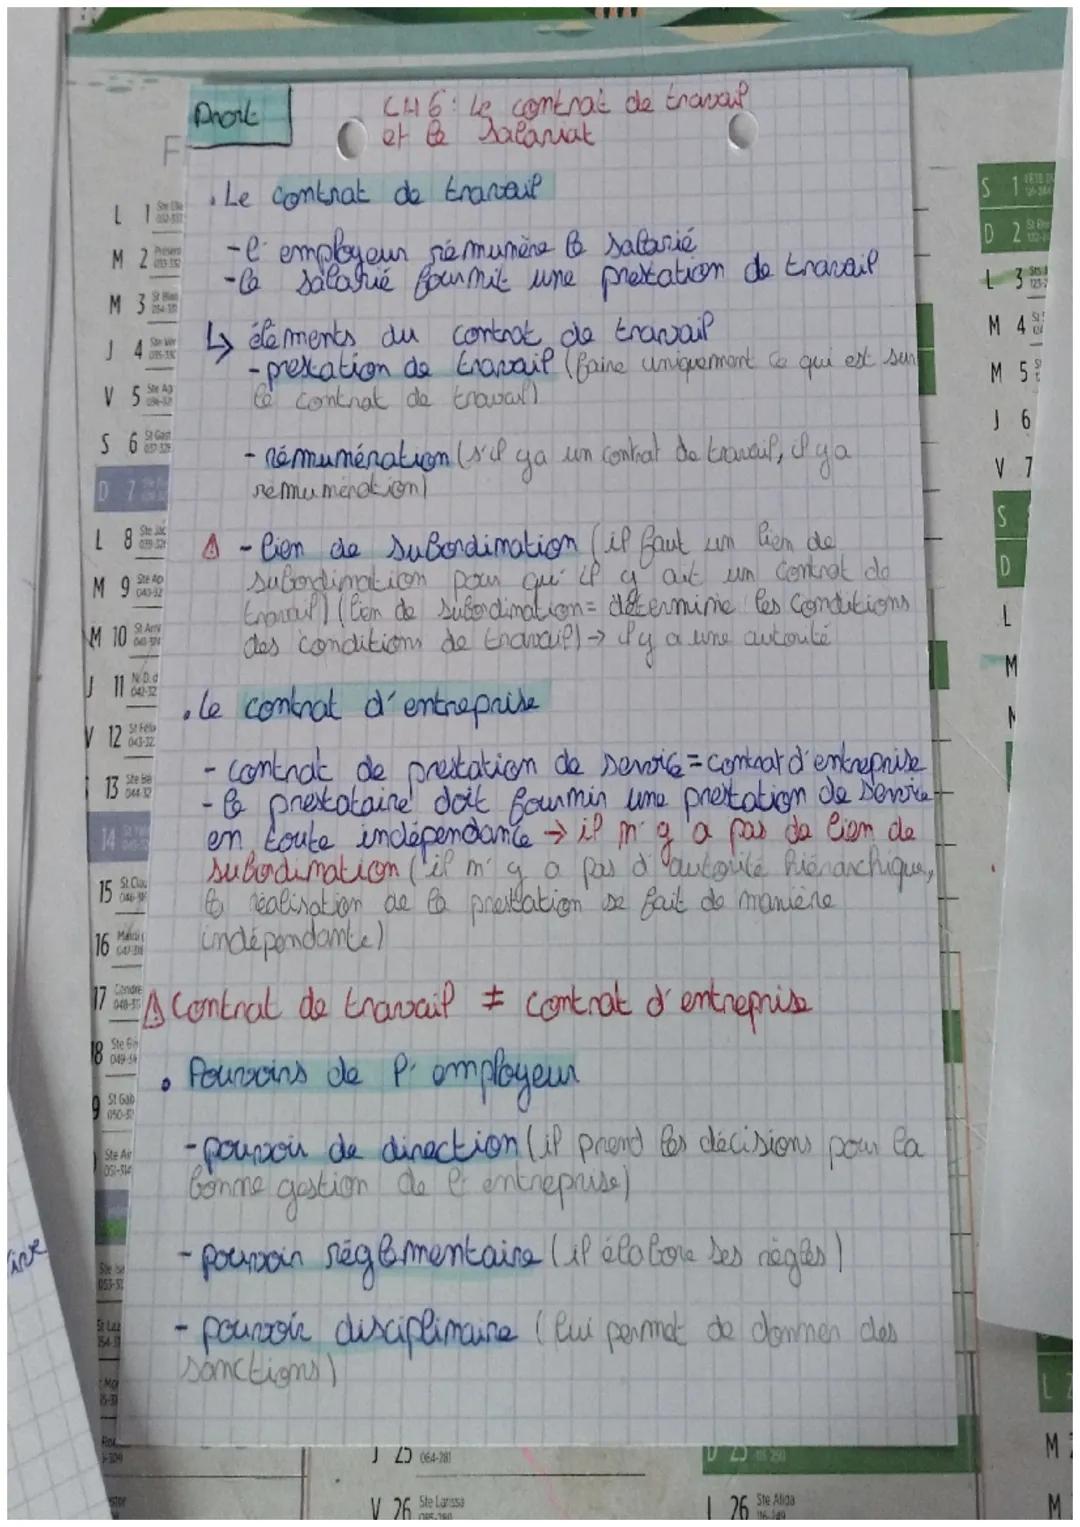 Droit
CH 6 : Le contrat de travail
et le Salariat
• Le contrat de travail
- l'employeur rémunère le salarié
- le salarié fournit une prestation de travail
↳ éléments du contrat de travail
- prestation de travail (faire uniquement ce qui est sur
le contrat de travail)
- rémunération (s'il y a un contrat de travail, il y a
rémunération)
⚠ - lien de subordination (il faut un lien de
subordination pour qu'il y ait un contrat de
travail) (lien de subordination = détermine les conditions
des conditions de travail) → il y a une autorité
• Le contrat d'entreprise
- contrat de prestation de service = contrat d'entreprise
- le prestataire doit fournir une prestation de service
en toute indépendance → il n'y a pas de lien de
subordination (il n'y a pas d'autorité hiérarchique,
la réalisation de la prestation se fait de manière
indépendante)
⚠ Contrat de travail ≠ contrat d'entreprise
• Pouvoirs de l'employeur
- pouvoir de direction (il prend les décisions pour la
bonne gestion de l'entreprise)
- pouvoir réglementaire (il élabore ses règles)
- pouvoir disciplinaire (lui permet de donner des
sanctions)
L 1
M 2
M 3
J 4
V 5
S 6
D 7
L 8
M 9
M 10
J 11
V 12
13
14
15
16
17
18
9
S 1
D 2
L 3
M 4
M 5
J 6
V 7
S
D
L
M
J 25 064-281
V 26 Ste Larissa
D 25
L 26 Ste Alida
M
M